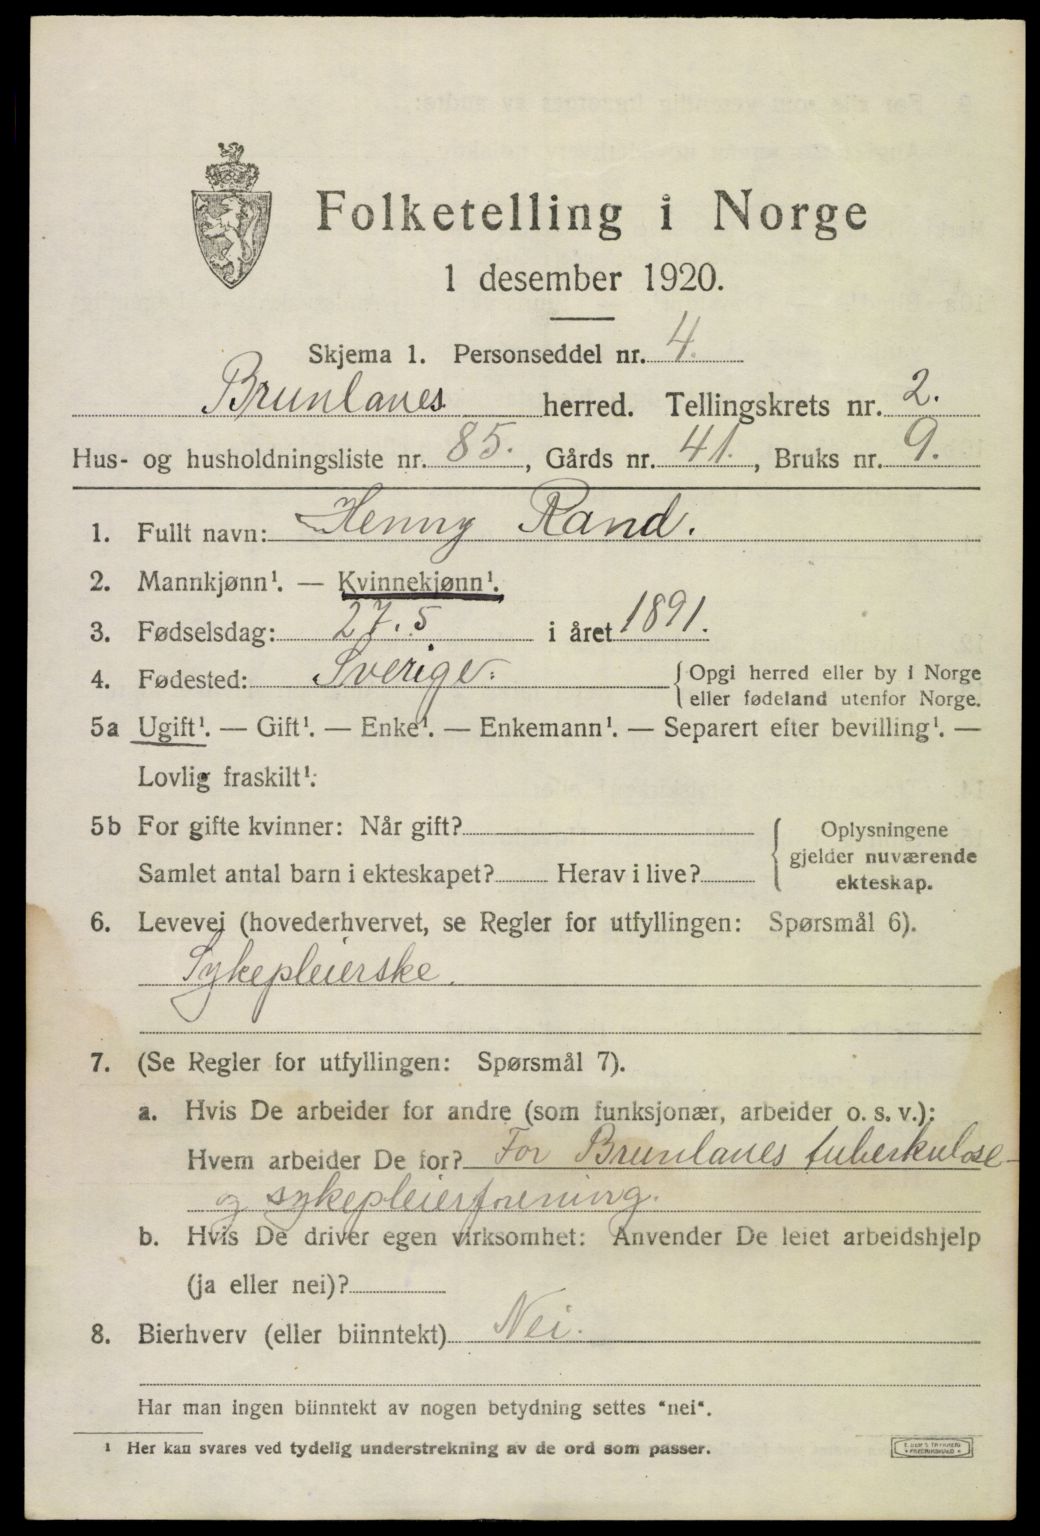 Folketelling i Norge
1 desember 1920.
Skjema 1. Personseddel nr. 4.
Brunlanes herred. Tellingskrets nr. 2.
Hus- og husholdningsliste nr. 85., Gårds nr. 41., Bruks nr. 9.
1. Fullt navn: Henny Rand.
2. Mannkjønn¹. — Kvinnekjønn¹.
3. Fødselsdag: 27.5 i året 1891.
4. Fødested: Sverige. Opgi herred eller by i Norge
eller fødeland utenfor Norge.
5a Ugift¹. — Gift¹. — Enke¹. — Enkemann¹. — Separert efter bevilling¹. —
Lovlig fraskilt¹.
5b For gifte kvinner: Når gift?
Samlet antal barn i ekteskapet? Herav i live?
Oplysningene
gjelder nuværende
ekteskap.
6. Levevei (hovederhvervet, se Regler for utfyllingen: Spørsmål 6).
Sykepleierske.
7. (Se Regler for utfyllingen: Spørsmål 7).
a. Hvis De arbeider for andre (som funksjonær, arbeider o. s. v.):
Hvem arbeider De for? For Brunlanes tuberkulose-
og sykepleierforening.
b. Hvis De driver egen virksomhet: Anvender De leiet arbeidshjelp
(ja eller nei)?
8. Bierhverv (eller biinntekt) Nei.
Har man ingen biinntekt av nogen betydning settes "nei".
¹ Her kan svares ved tydelig understrekning av de ord som passer.